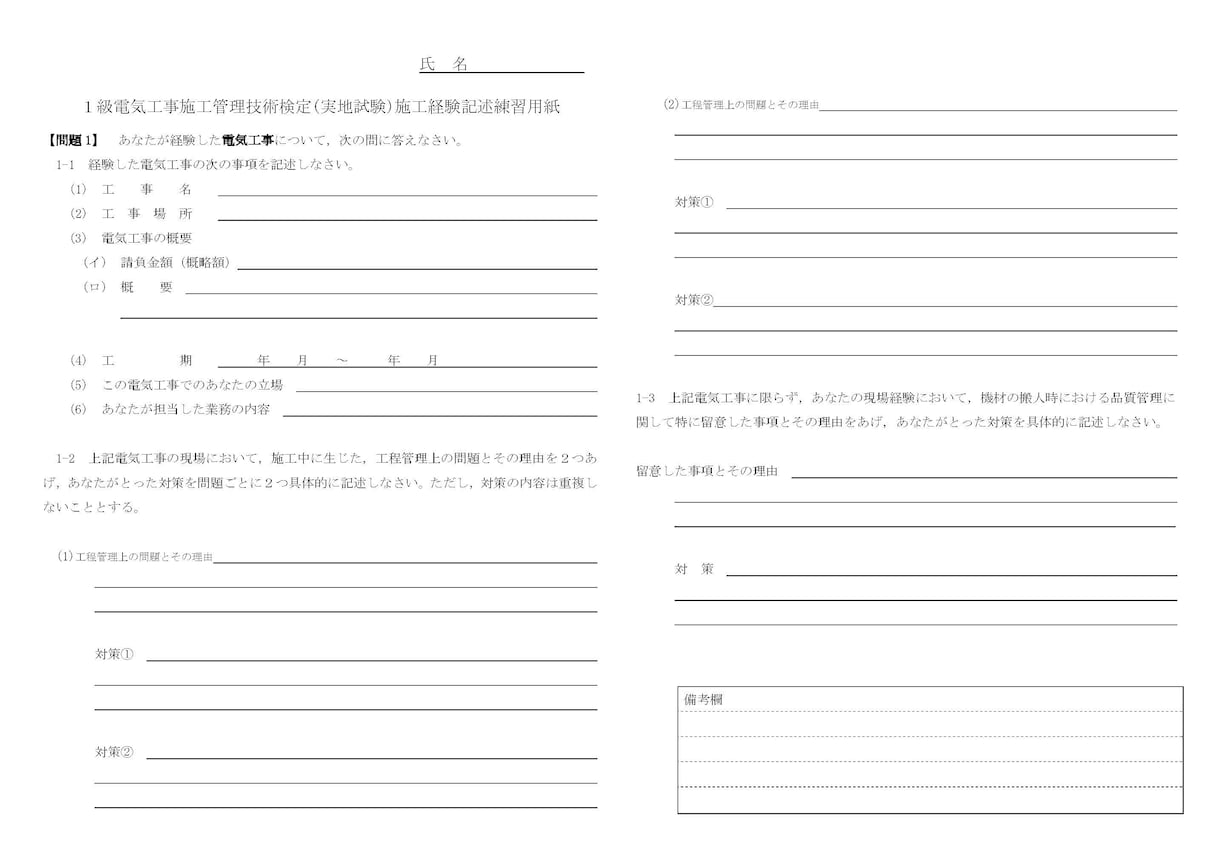 氏 名
１級電気工事施工管理技術検定(実地試験)施工経験記述練習用紙
【問題1】 あなたが経験した電気工事について，次の問に答えなさい。
1-1 経験した電気工事の次の事項を記述しなさい。
(1) 工 事 名
(2) 工 事 場 所
(3) 電気工事の概要
(イ) 請負金額（概略額）
(ロ) 概 要
(4) 工 期 年 月 ～ 年 月
(5) この電気工事でのあなたの立場
(6) あなたが担当した業務の内容
1-2 上記電気工事の現場において，施工中に生じた，工程管理上の問題とその理由を２つあ
げ，あなたがとった対策を問題ごとに２つ具体的に記述しなさい。ただし，対策の内容は重複し
ないこととする。
(1)工程管理上の問題とその理由
対策①
対策②
(2)工程管理上の問題とその理由
対策①
対策②
1-3 上記電気工事に限らず，あなたの現場経験において，機材の搬入時における品質管理に
関して特に留意した事項とその理由をあげ，あなたがとった対策を具体的に記述しなさい。
留意した事項とその理由
対 策
備考欄